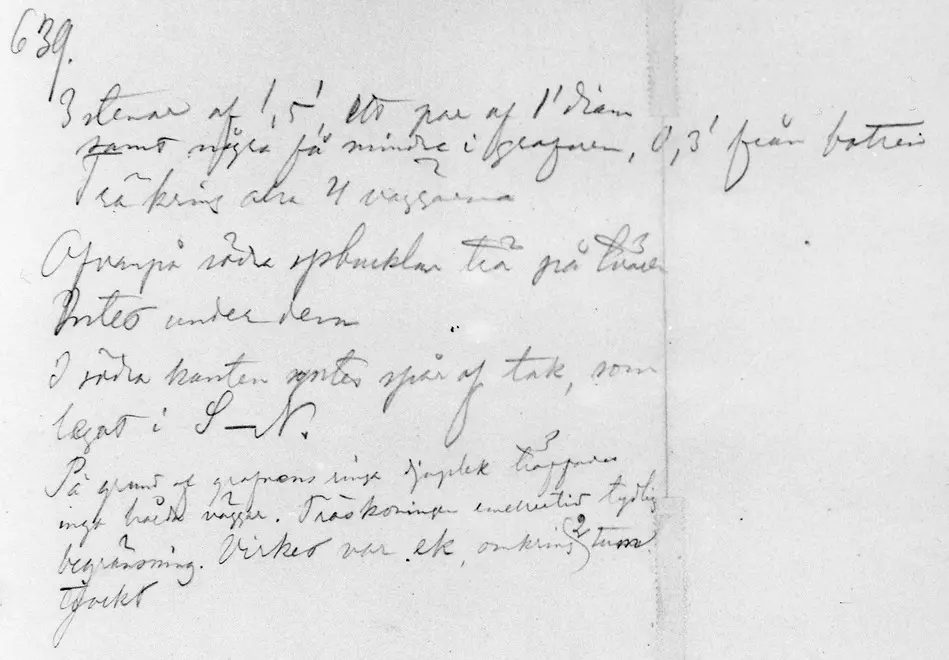 639.
3 stenar af 1,5', ett par af 1' diam
samt några få mindre i grafven, 0,3' från botten
Trä kring alla 4 väggarna
Ofvanpå södra spbucklan trä på tvären
Intet under dem
I södra kanten syntes spår af tak, som
legat i S–N.
På grund af grafvens ringa djuplek träffades
inga hårda väggar. Träskoningen emellertid tydlig
begränsning. Virket var ek, omkring 2 tum
tjockt